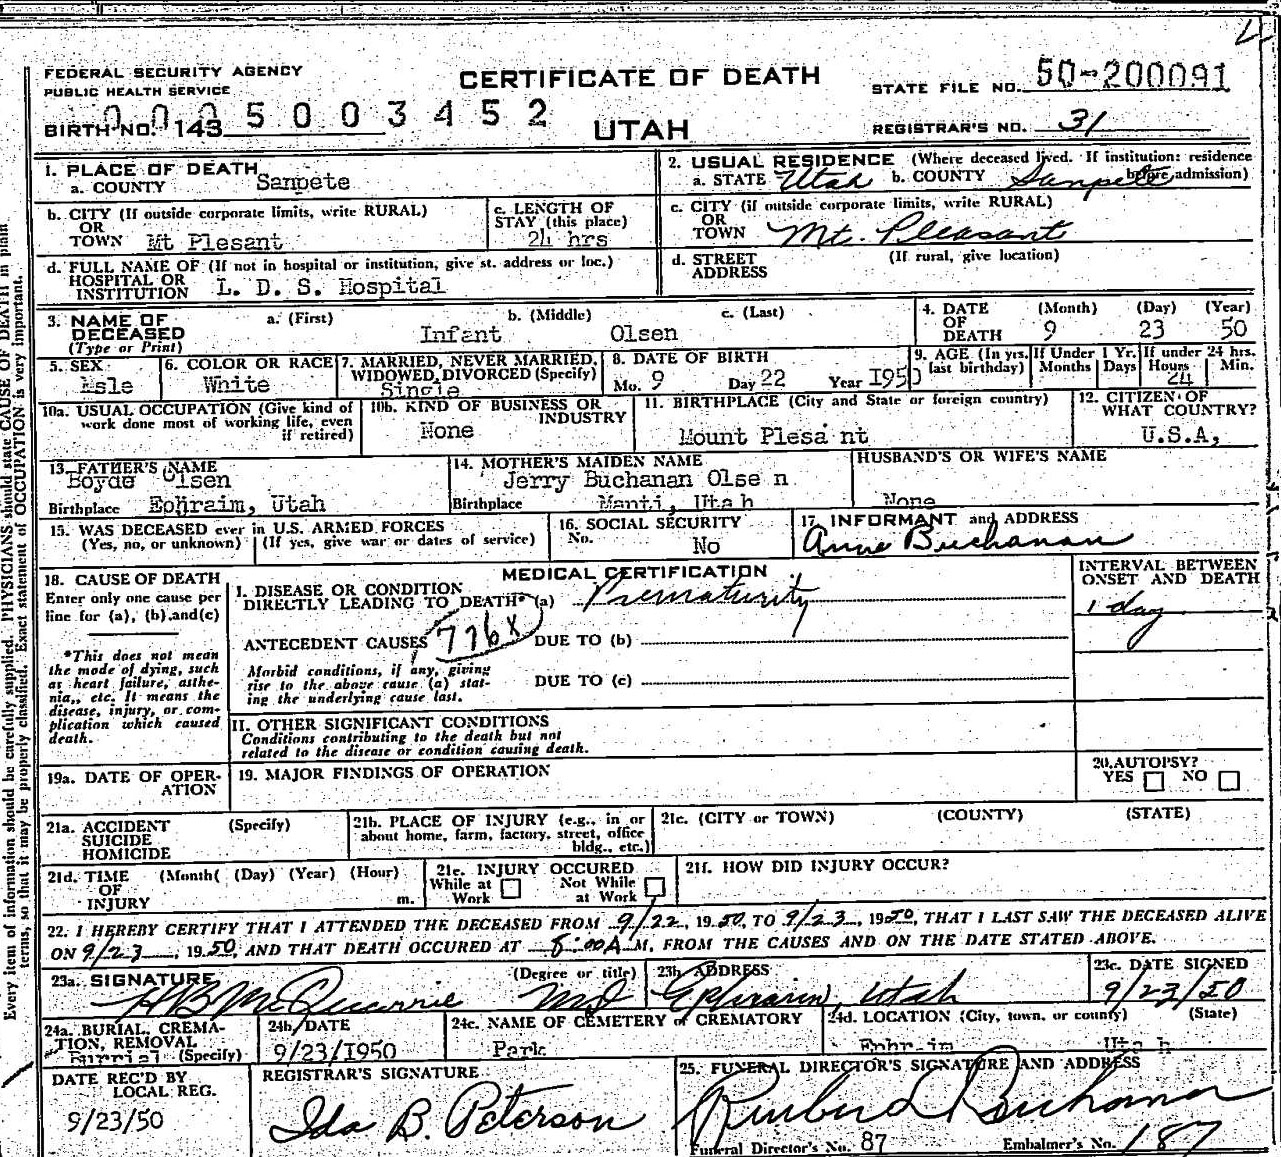 4
FEDERAL SECURITY AGENCY
PUBLIC HEALTH SERVICE
CERTIFICATE OF DEATH
STATE FILE NO. 50-200091
BIRTH NO. 143 0005003452
UTAH
REGISTRAR'S NO. 31
1. PLACE OF DEATH
a. COUNTY Sanpete
2. USUAL RESIDENCE (Where deceased lived. If institution: residence before admission)
a. STATE Utah b. COUNTY Sanpete
b. CITY (If outside corporate limits, write RURAL)
OR
TOWN Mt Plesant
c. LENGTH OF
STAY (this place)
24 hrs
c. CITY (if outside corporate limits, write RURAL)
OR
TOWN Mt. Pleasant
d. FULL NAME OF (If not in hospital or institution, give st. address or loc.)
HOSPITAL OR
INSTITUTION L. D. S. Hospital
d. STREET
ADDRESS
(If rural, give location)
3. NAME OF
DECEASED
(Type or Print)
a. (First) b. (Middle) c. (Last)
Infant Olsen
4. DATE
OF
DEATH
(Month) (Day) (Year)
9 23 50
5. SEX
Male
6. COLOR OR RACE
White
7. MARRIED, NEVER MARRIED,
WIDOWED, DIVORCED (Specify)
Single
8. DATE OF BIRTH
Mo. 9 Day 22 Year I950
9. AGE (In yrs.
last birthday)
If Under 1 Yr.
Months Days
If under 24 hrs.
Hours Min.
24
10a. USUAL OCCUPATION (Give kind of
work done most of working life, even
if retired)
10b. KIND OF BUSINESS OR
INDUSTRY
None
11. BIRTHPLACE (City and State or foreign country)
Mount Plesa nt
12. CITIZEN OF
WHAT COUNTRY?
U.S.A,
13. FATHER'S NAME
Boyde Olsen
Birthplace Ephraim, Utah
14. MOTHER'S MAIDEN NAME
Jerry Buchanan Olse n
Birthplace Manti, Uta h
HUSBAND'S OR WIFE'S NAME
None
15. WAS DECEASED ever in U.S. ARMED FORCES
(Yes, no, or unknown) (If yes, give war or dates of service)
16. SOCIAL SECURITY
No.
No
17. INFORMANT and ADDRESS
Anne Buchanan
18. CAUSE OF DEATH
Enter only one cause per
line for (a), (b) and (c)
*This does not mean
the mode of dying, such
as heart failure, asthe-
nia, etc. It means the
disease, injury, or com-
plication which caused
death.
MEDICAL CERTIFICATION
I. DISEASE OR CONDITION
DIRECTLY LEADING TO DEATH* (a) Prematurity
ANTECEDENT CAUSES 776X DUE TO (b)
Morbid conditions, if any, giving
rise to the above cause (a) stat-
ing the underlying cause last.
DUE TO (c)
II. OTHER SIGNIFICANT CONDITIONS
Conditions contributing to the death but not
related to the disease or condition causing death.
INTERVAL BETWEEN
ONSET AND DEATH
1 day
19a. DATE OF OPER-
ATION
19. MAJOR FINDINGS OF OPERATION
20. AUTOPSY?
YES NO
21a. ACCIDENT (Specify)
SUICIDE
HOMICIDE
21b. PLACE OF INJURY (e.g., in or
about home, farm, factory, street, office
bldg., etc.)
21c. (CITY or TOWN) (COUNTY) (STATE)
21d. TIME (Month( (Day) (Year) (Hour)
OF
INJURY m.
21e. INJURY OCCURED
While at Work Not While at Work
21f. HOW DID INJURY OCCUR?
22. I HEREBY CERTIFY THAT I ATTENDED THE DECEASED FROM 9/22, 1950, TO 9/23, 1950, THAT I LAST SAW THE DECEASED ALIVE
ON 9/23, 1950, AND THAT DEATH OCCURED AT 8:00A M, FROM THE CAUSES AND ON THE DATE STATED ABOVE.
23a. SIGNATURE (Degree or title)
HB McQuarrie MD
23b ADDRESS
Ephraim, Utah
23c. DATE SIGNED
9/23/50
24a. BURIAL, CREMA-
TION, REMOVAL
Burrial (Specify)
24b. DATE
9/23/I950
24c. NAME OF CEMETERY or CREMATORY
Park
24d. LOCATION (City, town, or county) (State)
Ephraim Uta h
DATE REC'D BY
LOCAL REG.
9/23/50
REGISTRAR'S SIGNATURE
Ida B. Peterson
25. FUNERAL DIRECTOR'S SIGNATURE AND ADDRESS
Buchanan
Funeral Director's No. 87 Embalmer's No. 187
Every item of information should be carefully supplied. PHYSICIANS should state CAUSE OF DEATH in plain
terms, so that it may be properly classified. Exact statement of OCCUPATION is very important.